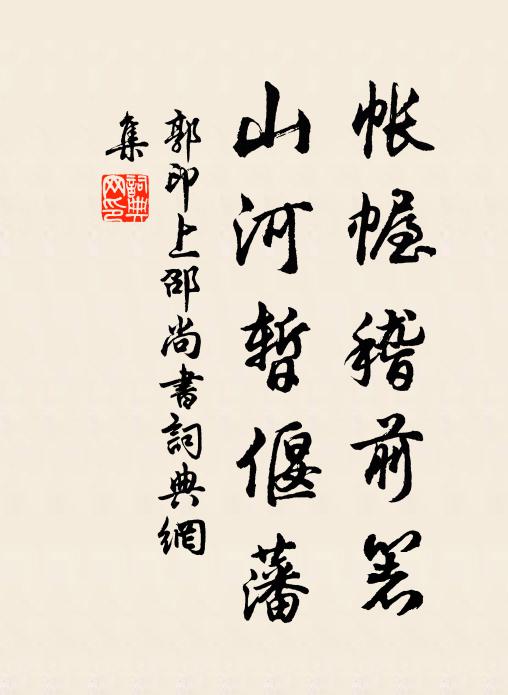 帐幄稽前箸
山河暂偃藩
郭印上邵尚書詞典網
集
詞典
网印